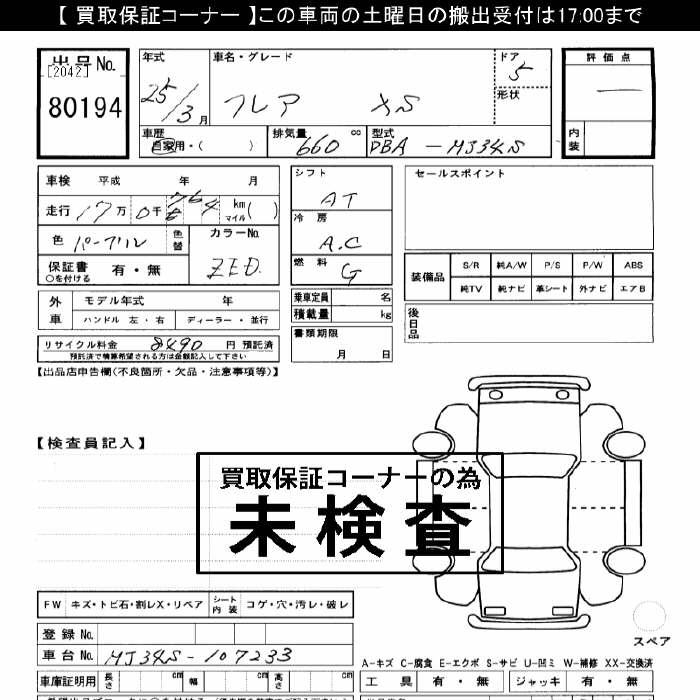 【 買取保証コーナー 】この車両の土曜日の搬出受付は17:00まで
出品No.
[2042]
80194
年式
25/3月
車名・グレード
フレア XS
ドア
5
形状
評価点
—
内装
車歴
自家用・( )
排気量
660 cc
型式
DBA-MJ34S
車検 平成 年 月
走行 17万 0千 764 km マイル( )
色 パープル
色替
カラーNo.
ZED
保証書 有・無
○を付ける
シフト
AT
冷房
A.C
燃料
G
セールスポイント
装備品
S/R 純A/W P/S P/W ABS
純TV 純ナビ 革シート 外ナビ エアB
外車
モデル年式 年
ハンドル 左・右 ディーラー・並行
乗車定員 名
積載量 kg
後日品
リサイクル料金 8490 円 預託済
預託済で精算希望される方は金額記入して下さい
書類期限
月 日
【出品店申告欄(不良箇所・欠品・注意事項等)】
【検査員記入】
買取保証コーナーの為
未検査
FW キズ・トビ石・割レX・リペア
シート内装 コゲ・穴・汚レ・破レ
スペア
登録 No.
車台 No. MJ34S-107233
A-キズ C-腐食 E-エクボ S-サビ U-凹ミ W-補修 XX-交換済
車庫証明用 長さ cm 幅 cm cm
工具 有・無 ジャッキ 有・無